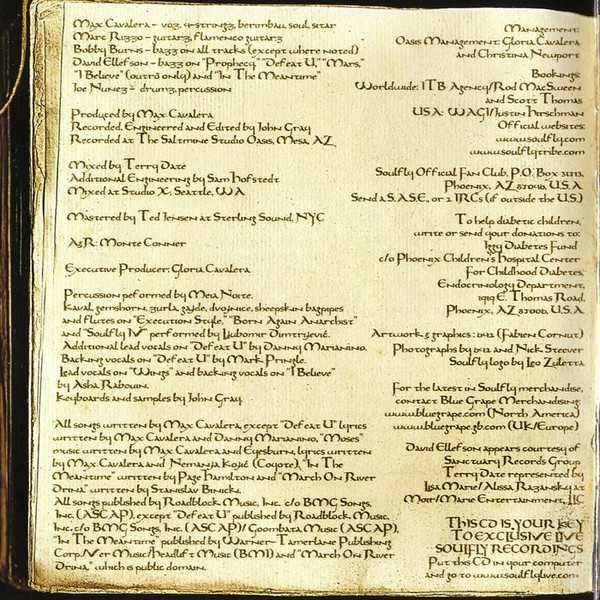 Max Cavalera - voz, 4-strings, berimbau, soul sitar
Marc Rizzo - guitarz, flamenco guitarz
Bobby Burns - bazz on all tracks (except where noted)
David Ellefson - bazz on "Prophecy," "Defeat U," "Mars,"
"I Believe" (outro only) and "In The Meantime"
Joe Nunez - drumz, percussion
Produced by Max Cavalera
Recorded, Engineered and Edited by John Gray
Recorded at The Saltmine Studio Oasis, Mesa, AZ
Mixed by Terry Date
Additional Engineering by Sam Hofstedt
Mixed at Studio X, Seattle, WA
Mastered by Ted Jensen at Sterling Sound, NYC
A&R: Monte Conner
Executive Producer: Gloria Cavalera
Percussion peformed by Meia Noite.
Kaval, gemshorn, zurla, gajde, dvojnice, sheepskin bagpipes
and flutes on "Execution Style," "Born Again Anarchist"
and "Soulfly IV" performed by Ljubomir Dimtrijević.
Additional lead vocals on "Defeat U" by Danny Marianino.
Backing vocals on "Defeat U" by Mark Pringle.
Lead vocals on "Wings" and backing vocals on "I Believe"
by Asha Rabouin.
Keyboards and samples by John Gray
All songs written by Max Cavalera, except "Defeat U" lyrics
written by Max Cavalera and Danny Marianino, "Moses"
music written by Max Cavalera and Eyesburn, lyrics written
by Max Cavalera and Nemanja Kojić (Coyote), "In The
Meantime" written by Page Hamilton and "March On River
Drina" written by Stanislav Binicki.
All songs published by Roadblock Music, Inc. c/o BMG Songs,
Inc. (ASCAP), except "Defeat U" published by Roadblock Music,
Inc. c/o BMG Songs, Inc. (ASCAP)/ Goombata Music (ASCAP),
"In The Meantime" published by Warner-Tamerlane Publishing
Corp./Ver Music/Deadleft Music (BMI) and "March On River
Drina," which is public domain.
Management:
Oasis Management: Gloria Cavalera
and Christina Newport
Bookings:
Worldwide: ITB Agency/Rod MacSween
and Scott Thomas
USA: WAG/Justin Hirschman
Official websites:
www.soulfly.com
www.soulflytribe.com
Soulfly Official Fan Club, P.O. Box 3213,
Phoenix, AZ 87040, U.S.A
Send a S.A.S.E., or 2 IRCs (if outside the U.S.)
To help diabetic children,
write or send your donations to:
Iggy Diabetes Fund
c/o Phoenix Children's Hospital Center
For Childhood Diabetes,
Endocrinology Department,
1919 E. Thomas Road,
Phoenix, AZ 87006, U.S.A
Artwork & graphics: (Fabien Cornut)
Photographs by and Nick Steever
Soulfly logo by Leo Zuletta
For the latest in Soulfly merchandise,
contact Blue Grape Merchandising
www.bluegrape.com (North America)
www.bluegrape.gb.com (UK/Europe)
David Ellefson appears courtesy of
Sanctuary Records Group
Terry Date represented by
Lisa Marie/Alissa Ragansky at
Moir/Marie Entertainment, LLC
THIS CD IS YOUR KEY
TO EXCLUSIVE LIVE
SOULFLY RECORDINGS
Put this CD in your computer
and go to www.soulflylive.com